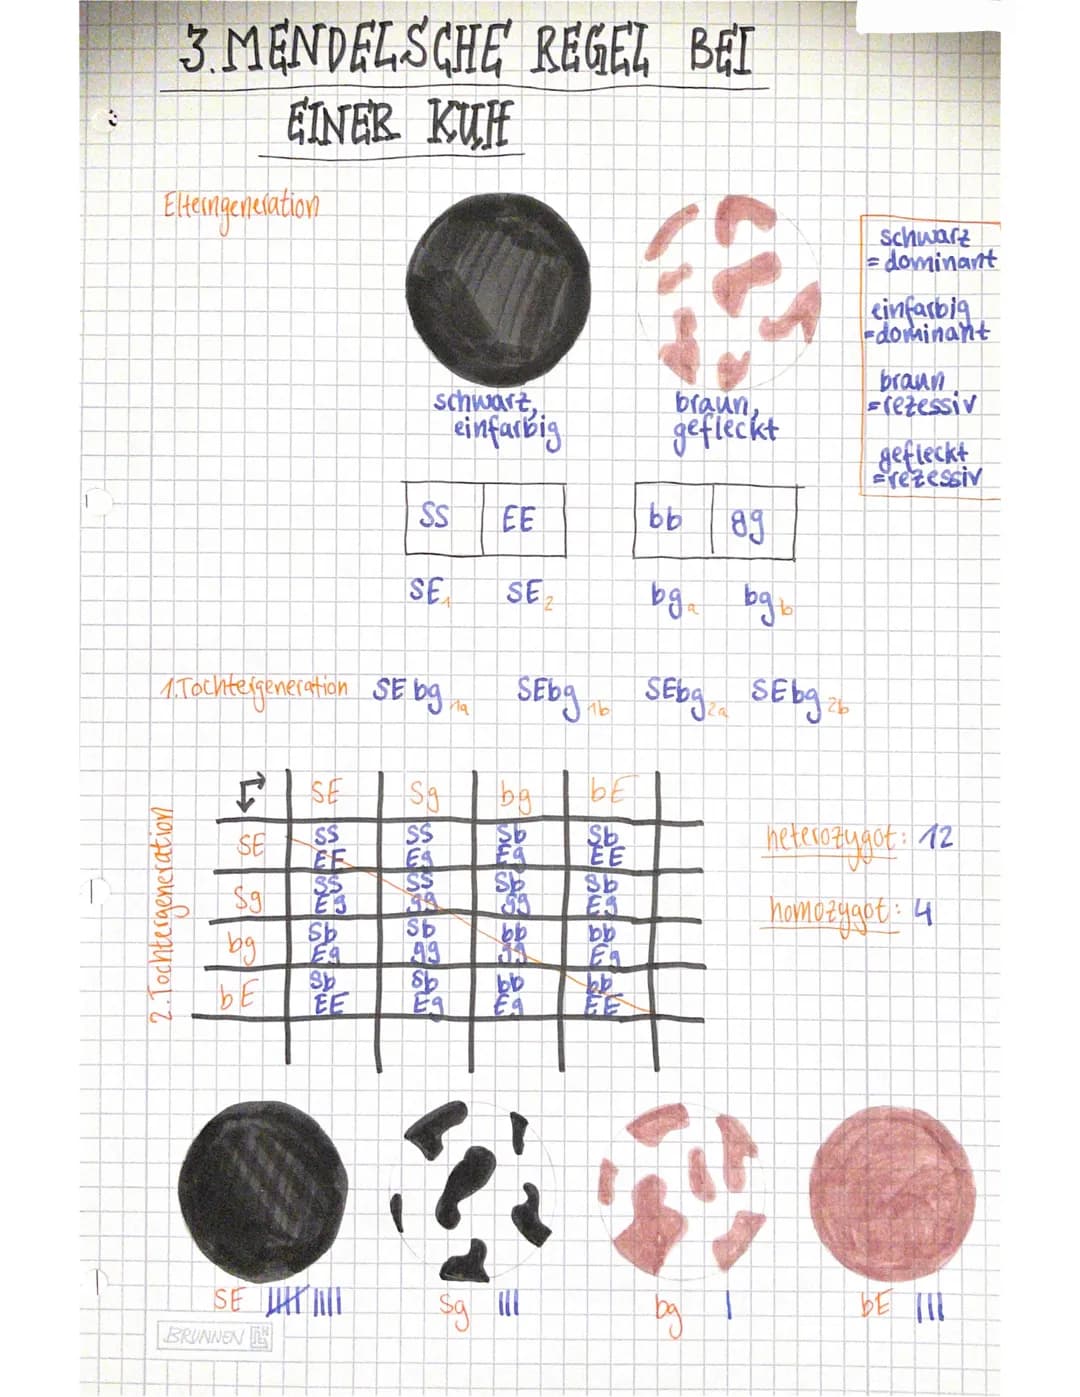 3. MENDELSCHE REGEL BEI
EINER KUH
Elterngeneration
schwarz,
einfarbig
braun,
gefleckt
schwarz
= dominant
einfarbig
=dominant
braun
=rezessiv
gefleckt
=rezessiv
SS EE bb gg
SE1 SE2 bga bgb
1.Tochtergeneration SEbg1a SEbg1b SEbg2a SEbg2b
2.Tochtergeneration
SE Sg bg bE
SE SS SS Sb Sb
EE Eg Eg EE
Sg SS SS Sb Sb
Eg gg gg Eg
bg Sb Sb bb bb
Eg gg gg Eg
bE Sb Sb bb bb
EE Eg Eg EE
heterozygot: 12
homozygot: 4
SE |||| |||| Sg ||| bg | bE |||
BRUNNEN